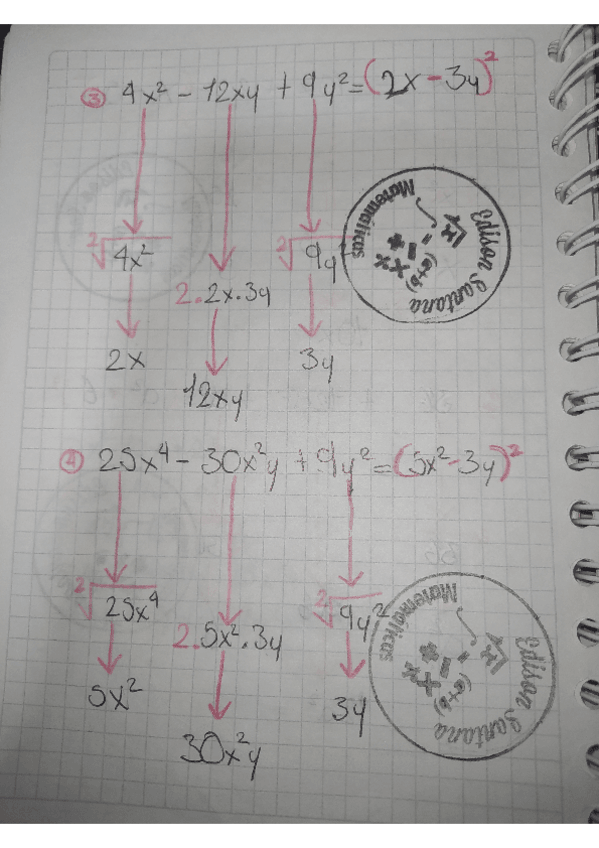 ③ 4x² - 12xy + 9y² = (2x - 3y)²
²√4x²
2.2x.3y
²√9y²
2x
12xy
3y
Edison Santana
Matemáticas
√x
(a+b)
④ 25x⁴ - 30x²y + 9y² = (5x² - 3y)²
²√25x⁴
2.5x².3y
²√9y²
5x²
30x²y
3y
Edison Santana
Matemáticas
√x
(a+b)